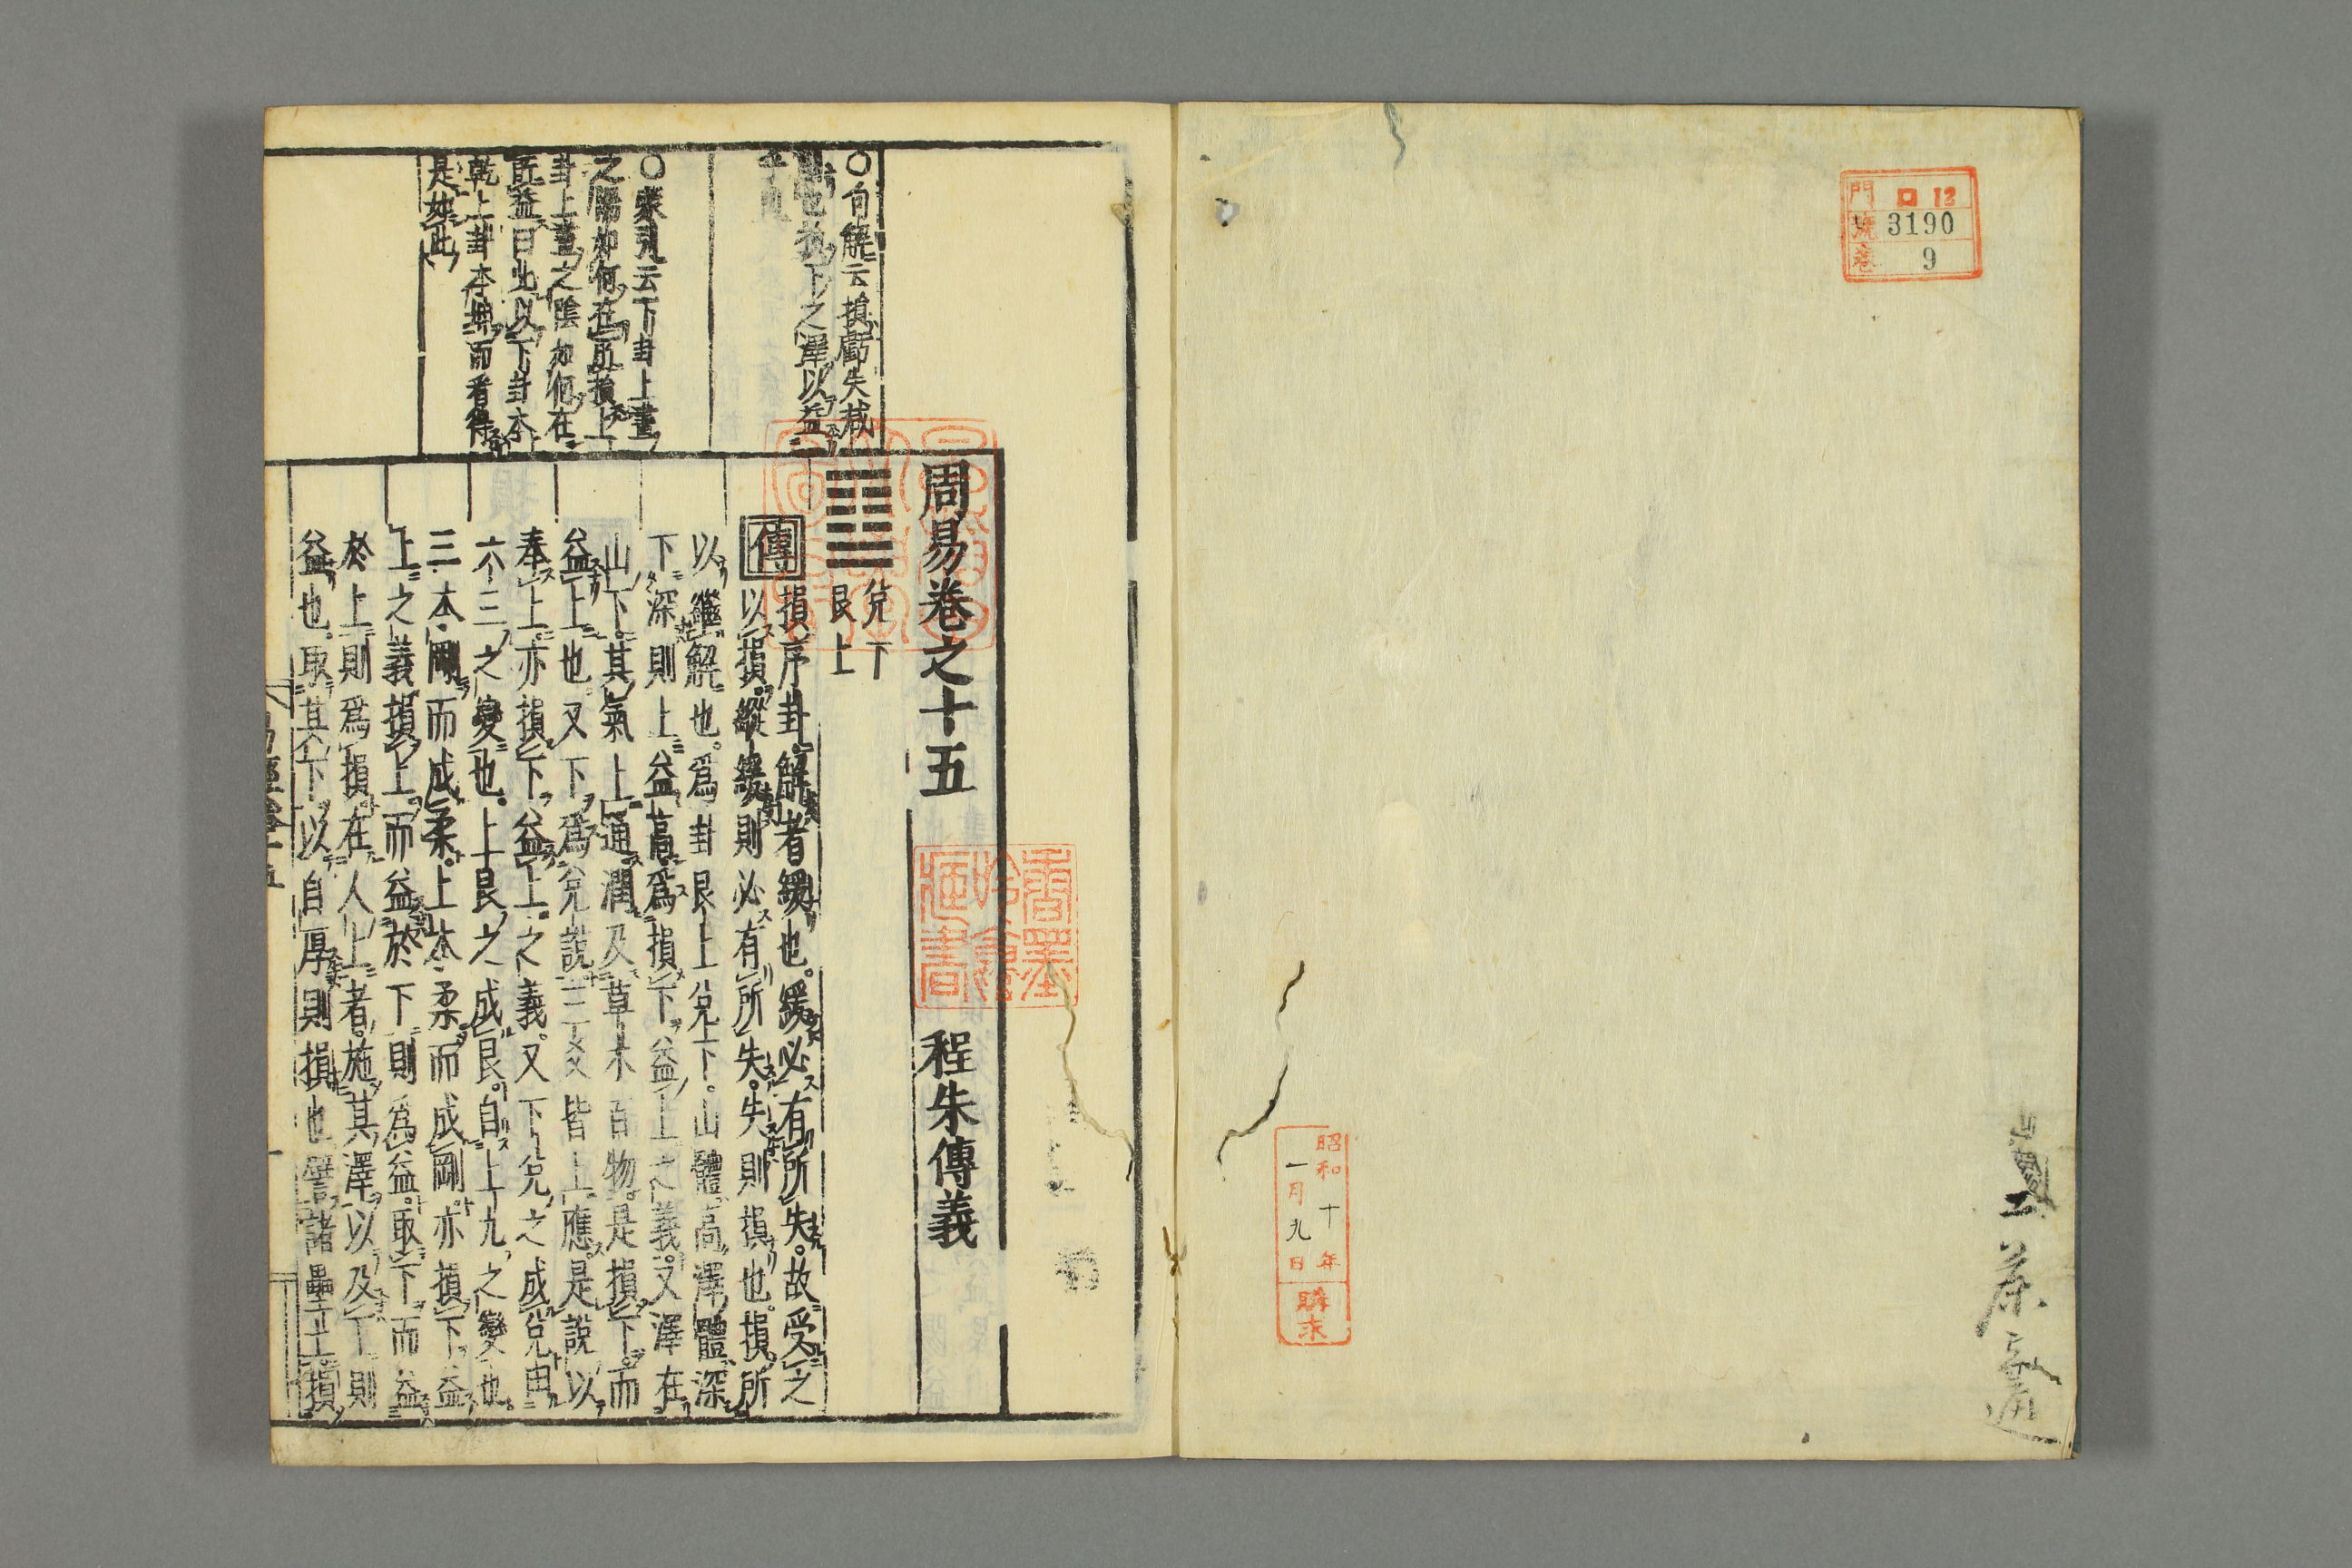 門 ロ 12
號 3190
卷 9
昭和十年
一月九日
購求
周易卷之十五 程朱傳義
兌下
艮上
傳 損序卦解者緩也緩必有所失故受之
以損縱緩則必有所失失則損也損所
以繼解也爲卦艮上兌下山體高澤體深
下深則上益高爲損下益上之義又澤在
山下其氣上通潤及草木百物是損下而
益上也又下爲兌說三爻皆上應是說以
奉上亦損下益上之義又下兌之成兌由
六三之變也上艮之成艮自上九之變也
三本剛而成柔上本柔而成剛亦損下益
上之義損上而益於下則爲益取下而益
於上則爲損在人上者施其澤以及下則
益也取其下以自厚則損也譬諸壘土損
○句解云損虧失減
也損下之澤以益
○蒙引云下卦上畫
之陽如何在所損上
卦上畫之陰如何在
所益曰此以下卦本
乾上卦本坤而看得
是如此